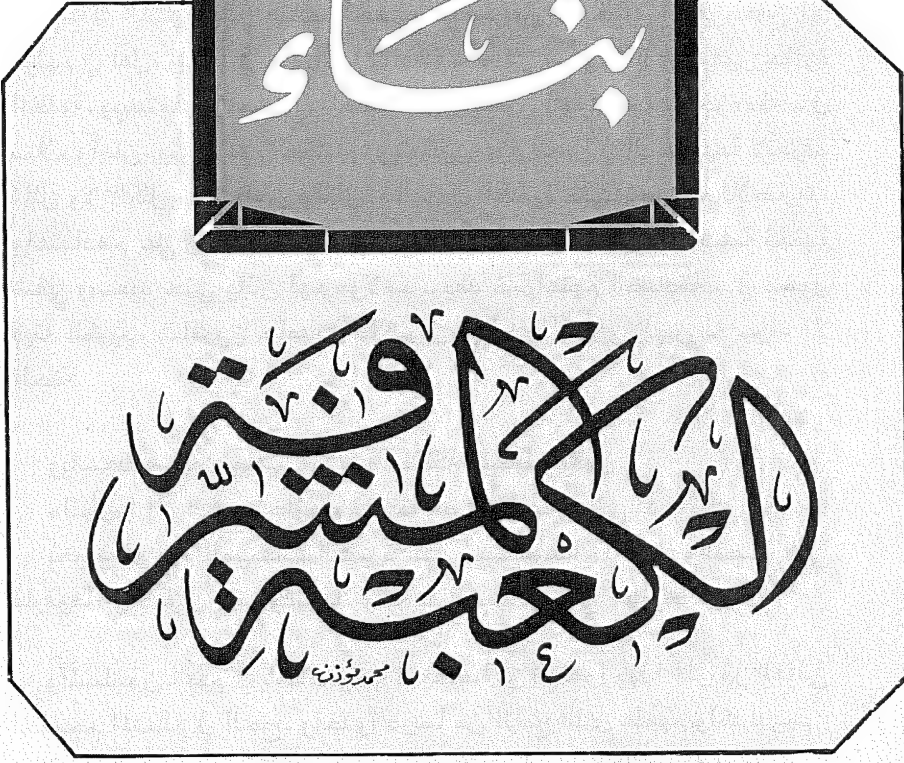 بناء
الكعبة المشرّفة
محمد مؤذن